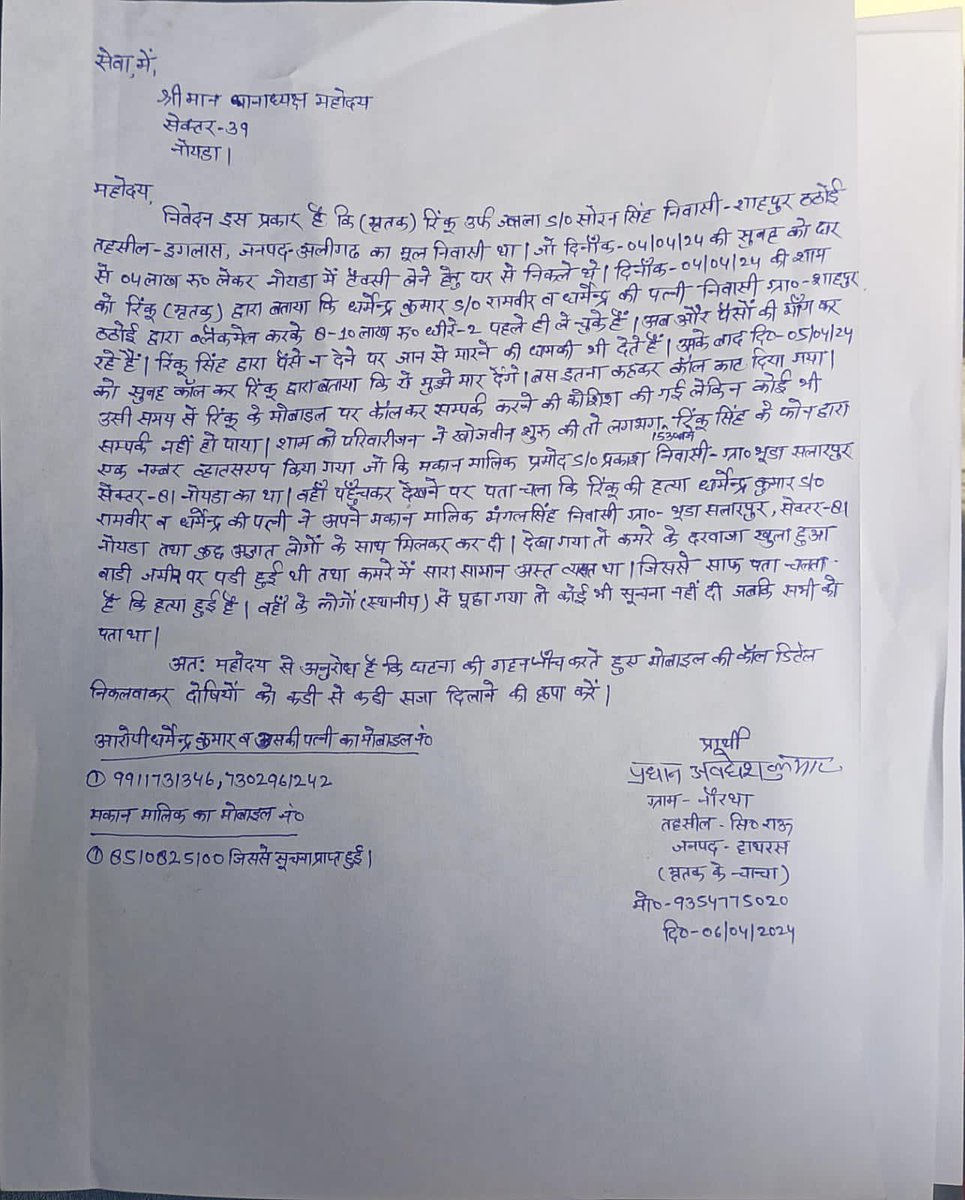 सेवा में,
श्रीमान थानाध्यक्ष महोदय
सेक्टर-39
नोयडा।
महोदय,
निवेदन इस प्रकार है कि (मृतक) रिंकू उर्फ S/0 सोरन सिंह निवासी-शाहपुर ठठोई
तहसील-इगलास, जनपद-अलीगढ का मूल निवासी था। जो दिनाँक-04/04/24 की सुबह को घर
से 04 लाख रू० लेकर नोयडा में टैक्सी लेने हेतु घर से निकले थे। दिनाँक-04/04/24 की शाम
को रिंकू (मृतक) द्वारा बताया कि धर्मेन्द्र कुमार S/0 रामवीर व धर्मेन्द्र की पत्नी निवासी ग्रा०-शाहपुर
ठठोई द्वारा ब्लैकमेल करके 8-10 लाख रू० धीरे-2 पहले ही ले चुके हैं। अब और पैसों की माँग कर
रहे हैं। रिंकू सिंह द्वारा पैसे न देने पर जान से मारने की धमकी भी देते हैं। उसके बाद दि०-05/04/24
को सुबह कॉल कर रिंकू द्वारा बताया कि ये मुझे मार देंगे। बस इतना कहकर कॉल काट दिया गया।
उसी समय से रिंकू के मोबाइल पर कॉल कर सम्पर्क करने की कोशिश की गई लेकिन कोई भी
सम्पर्क नहीं हो पाया। शाम को परिवारीजन ने खोजबीन शुरू की तो लगभग रिंकू सिंह के फोन द्वारा
एक नम्बर व्हातसएप किया गया जो कि मकान मालिक प्रमोद S/0 प्रकाश निवासी-ग्रा० भूडा सलारपुर
सेक्टर-81 नोयडा का था। वहाँ पहुँचकर देखने पर पता चला कि रिंकू की हत्या धर्मेन्द्र कुमार S/0
रामवीर व धर्मेन्द्र की पत्नी ने अपने मकान मालिक मंगलसिंह निवासी ग्रा०-भूडा सलारपुर, सेक्टर-81
नोयडा तथा कुछ अज्ञात लोगों के साथ मिलकर कर दी। देखा गया तो कमरे के दरवाजा खुला हुआ
बाडी जमीन पर पडी हुई थी तथा कमरे में सारा सामान अस्त व्यस्त था। जिससे साफ पता चलता
है कि हत्या हुई है। वहाँ के लोगों (स्थानीय) से पूछा गया तो कोई भी सूचना नहीं दी जबकि सभी को
पता था।
अतः महोदय से अनुरोध है कि घटना की गहन जाँच करते हुए मोबाइल की कॉल डिटेल
निकलवाकर दोषियों को कडी से कडी सजा दिलाने की कृपा करें।
आरोपी धर्मेन्द्र कुमार व उसकी पत्नी का मोबाइल नं०
① 9911731346, 7302961242
मकान मालिक का मोबाइल नं०
① 8510825100 जिससे सूचना प्राप्त हुई।
प्रार्थी
प्रधान अवधेश कुमार
ग्राम-नौरथा
तहसील-सि० राऊ
जनपद-हाथरस
(मृतक के चाचा)
मो०-9354775020
दि०-06/04/2024